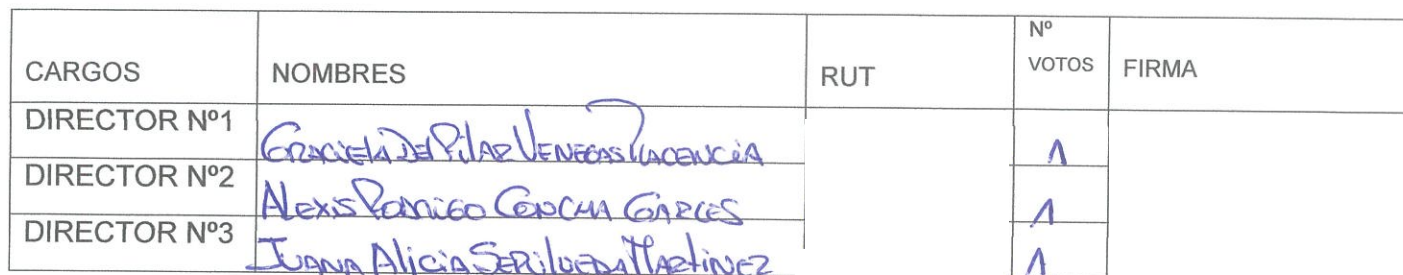 CARGOS NOMBRES RUT Nº VOTOS FIRMA
DIRECTOR Nº1 GRACIELA DEL PILAR VENEGAS PLACENCIA 1
DIRECTOR Nº2 ALEXIS RODRIGO CONCHA GARCES 1
DIRECTOR Nº3 JUANA ALICIA SEPULVEDA MARTINEZ 1